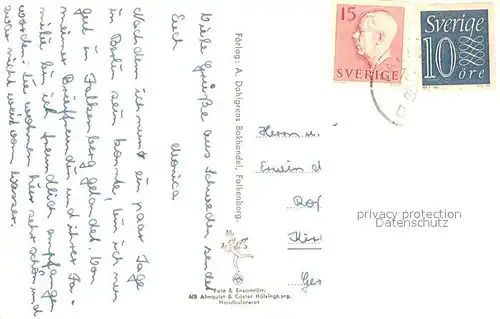 Nachdem ich nun ein paar Tage
in Berlin sein konnte, bin ich nun
gut in Falkenberg gelandet. Von
meiner Brieffreundin und ihrer Fa-
milie bin ich freundlich empfangen
worden. Sie wohnen hier sehr schön und
zwar nicht weit vom Wasser.
Viele Grüße aus Schweden sendet
Euch Monica
Förlag: A. Dahlgrens Bokhandel, Falkenberg.
15
SVERIGE
Sverige
10
öre
Herrn u.
Erwin d
Rof
Kir
Ger
privacy protection
VINTAGE-POSTCARDS
Foto & Ensamrätt:
A/B Almquist & Cöster Hälsingborg.
Handkolorerat